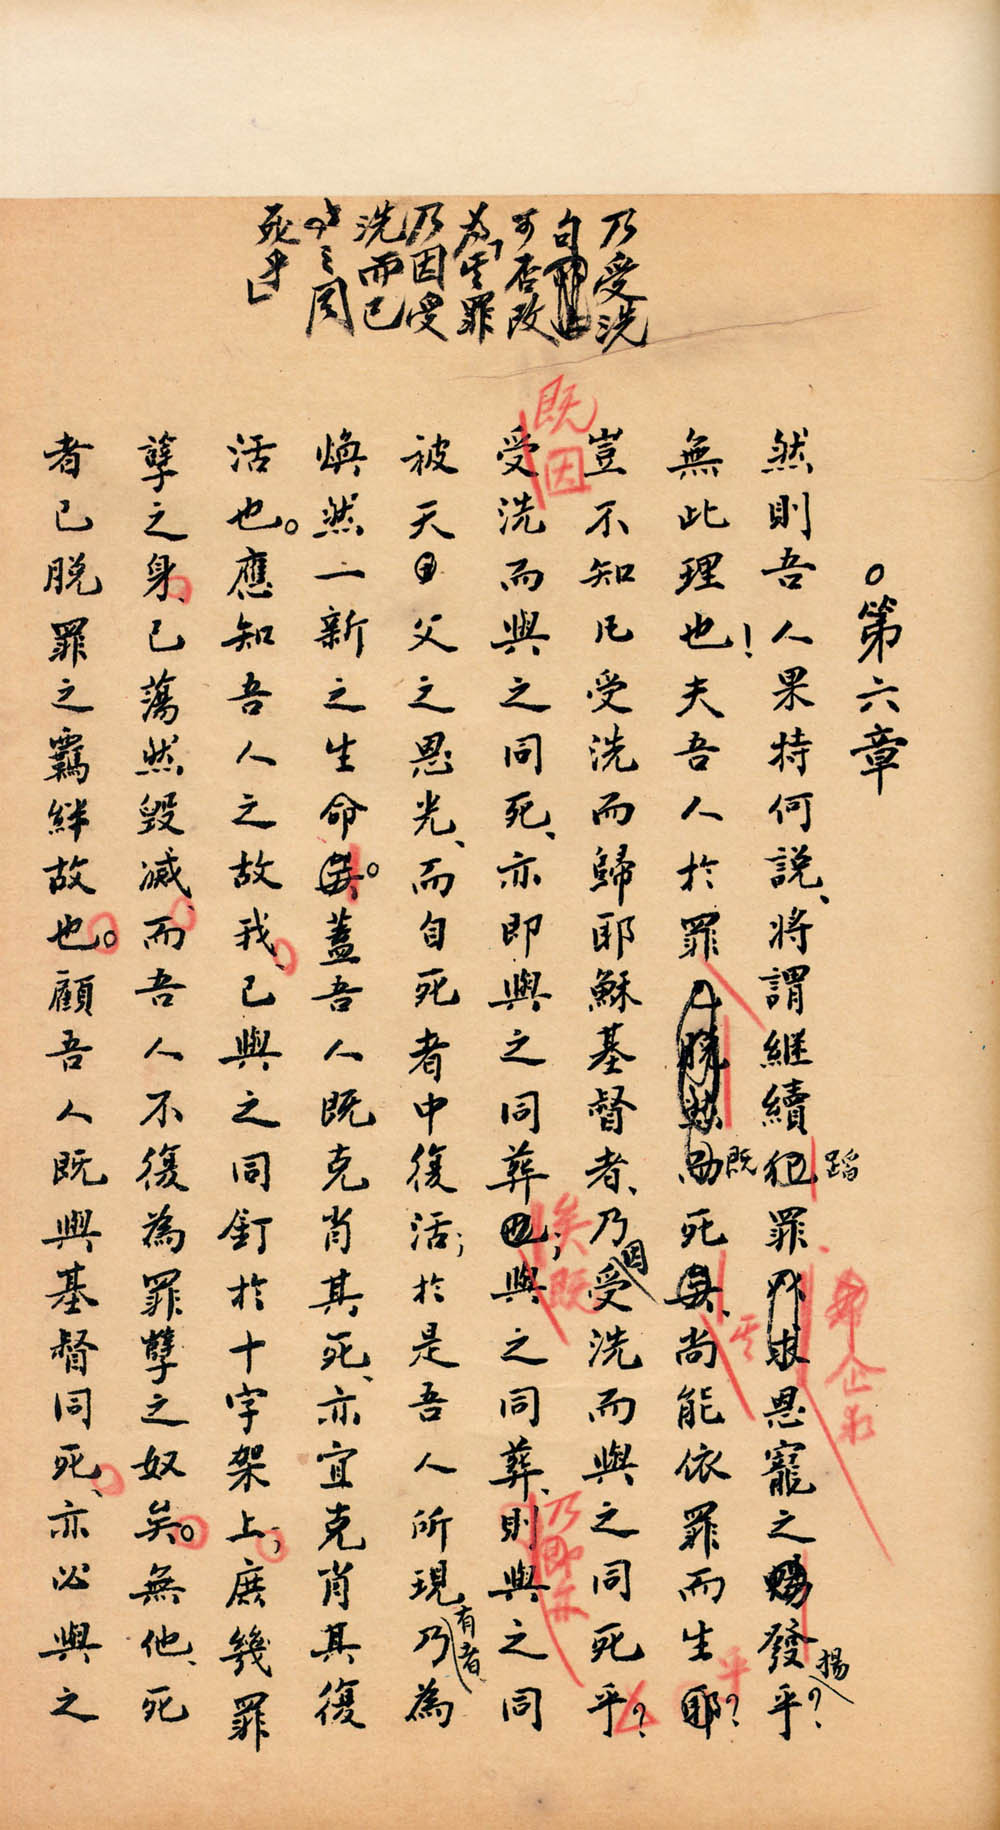 乃受洗
句
可否改
為「豈非
乃因受
洗而已
與之同
死乎」
○第六章
然則吾人果特何說、將謂繼續犯罪以求恩寵之發乎？
蹈
希企求
揚
無此理也！夫吾人於罪死矣、尚能依罪而生耶？
既
乎
豈不知凡受洗而歸耶穌基督者、乃受洗而與之同死乎？
因
既因
受洗而與之同死、亦即與之同葬也；與之同葬、則與之同
矣既
乃即亦
被天父之恩光、而自死者中復活；於是吾人所現乃為
有者
煥然一新之生命。蓋吾人既克肖其死、亦宜克肖其復
活也。應知吾人之故我、已與之同釘於十字架上；庶幾罪
孽之身、已蕩然毀滅、而吾人不復為罪孽之奴矣。無他、死
者已脫罪之羈絆故也。顧吾人既與基督同死、亦必與之